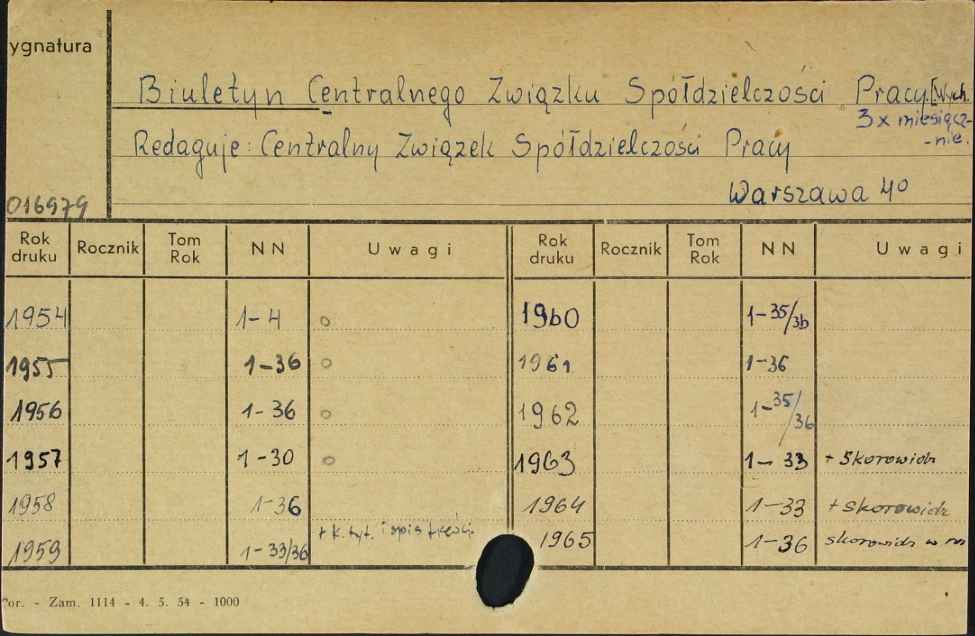 ygnatura
Biuletyn Centralnego Związku Spółdzielczości Pracy. [Wych.
3 x miesięcz-
-nie.
Redaguje: Centralny Związek Spółdzielczości Pracy
Warszawa 4°
016979
Rok druku Rocznik Tom Rok NN Uwagi Rok druku Rocznik Tom Rok NN Uwagi
1954 1-4 o 1960 1-35/36
1955 1-36 o 1961 1-36
1956 1-36 o 1962 1-35/36
1957 1-30 o 1963 1-33 + Skorowidz
1958 1-36 1964 1-33 + skorowidz
1959 1-33/36 + k. tyt. i spis treści. 1965 1-36 skorowidz w
For. - Zam. 1114 - 4. 5. 54 - 1000